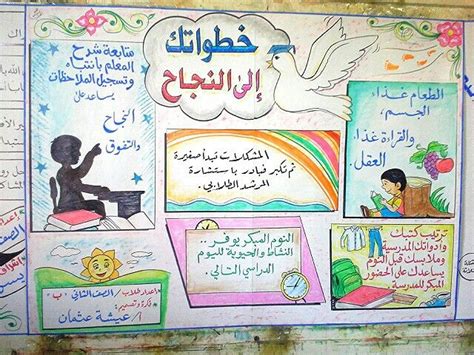 خطواتك
إلى النجاح
متابعة شرح
المعلم بانتباه
وتسجيل الملاحظات
يساعد على
النجاح
والتفوق
الطعام غذاء
الجسم،
والقراءة غذاء
العقل.
المشكلات تبدأ صغيرة
ثم تكبر فبادر باستشارة
المرشد الطلابي.
النوم المبكر يوفر..
النشاط والحيوية لليوم
الدراسي التالي.
ترتيب كتبك
وأدواتك المدرسية
وملابسك قبل النوم
يساعدك على الحضور
المبكر للمدرسة.
إعداد طلاب/ الصف الثاني - ب
فكرة وتصميم:
أ/ عيشة عثمان